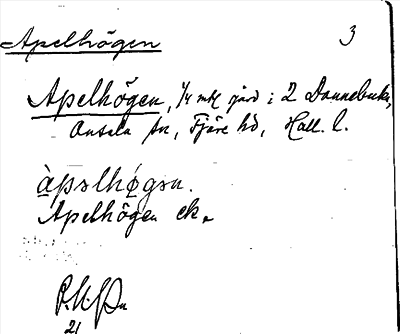 Apelhögen 3
Apelhögen, 1/4 mtl gård i 2 Dannebacka,
Onsala sn, Fjäre hd, Hall. l.
àpəlhø̀gən.
Apelhögen ek.
21